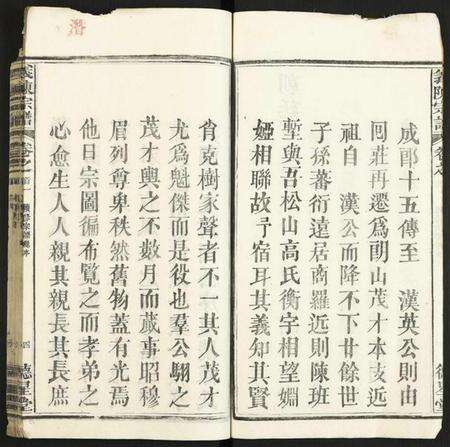 成郎十五傳至　漢英公則由
囘莊再遷爲朗山茂才本支近
祖自　漢公而降不下廿餘世
子孫蕃衍遠居商羅近則陳班
塹與吾松山高氏衡宇相望婣
婭相聯故予宿耳其義知其賢
肖克樹家聲者不一其人茂才
尤爲魁傑而是役也羣公騆之
茂才輿之不數月而蕆事昭穆
眉列尊卑秩然舊物蓋有光焉
他日宗圖徧布覽之而孝弟之
心愈生人人親其親長其長庶
義陳宗譜
卷之一
四
德星堂